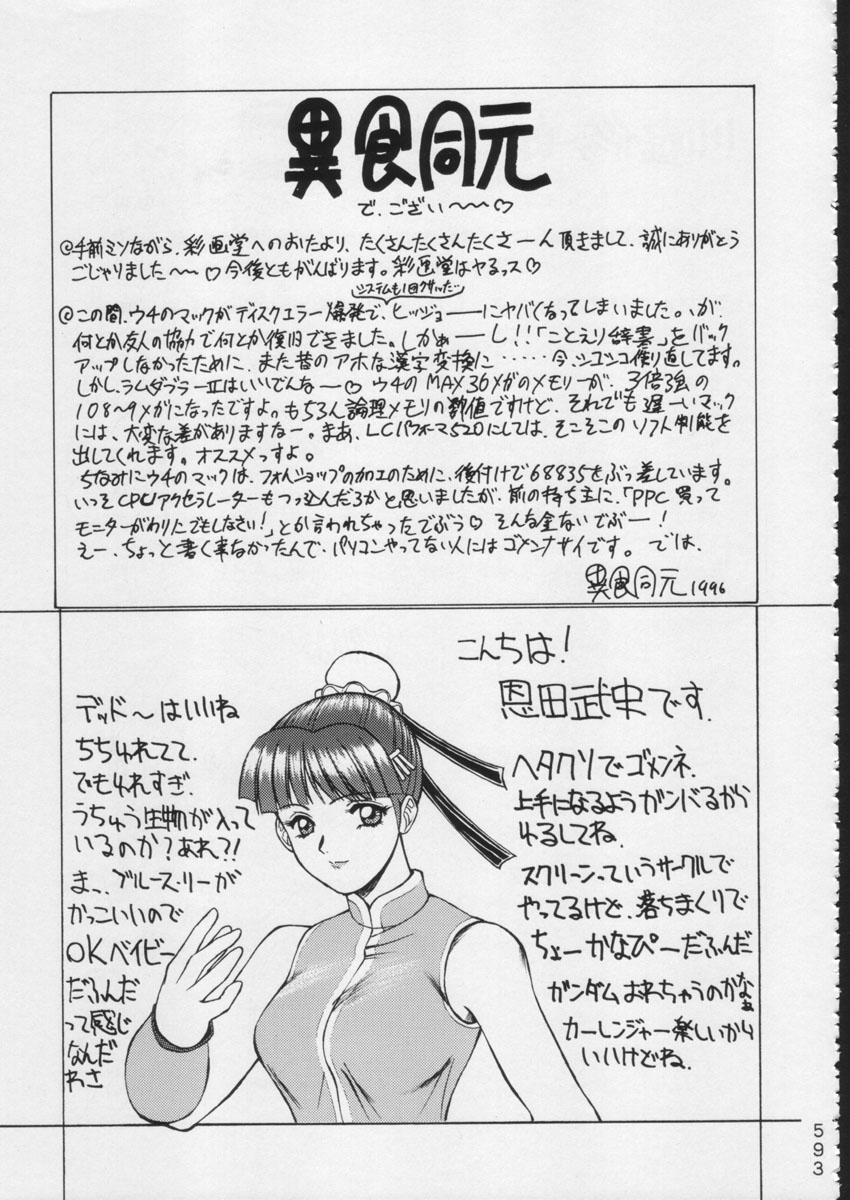 異食同元
で、ござい~~♡
◎手前ミソながら、彩画堂へのおたより、たくさんたくさんたくさーん頂きまして、誠にありがとう
ごじゃりました~~♡今後ともがんばります。彩画堂はヤるっス♡
システムも1回クサッた…
◎この間、ウチのマックがディスクエラー爆発で、ヒッジョ──にヤバくなってしまいました。が、
何とか友人の協力で何とか復旧できました。しかぁーし!!「ことえり辞書」をバック
アップしなかったために、また昔のアホな漢字変換に……今、シコシコ作り直してます。
しかし、ラムダブラーⅡはいいでんなー♡ウチのMAX36メガのメモリーが、3倍強の
108~9メガになったですよ。もちろん論理メモリの数値ですけど、それでも遅ーいマック
には、大変な差がありますなー。まあ、LCパフォーマ520にしては、そこそこのソフト性能を
出してくれます。オススメっすよ。
ちなみにウチのマックは、フォトショップの加工のために、後付けで68835をぶっ差しています。
いっそCPUアクセラレーターもつっ込んだろかと思いましたが、前の持ち主に、「PPC買って
モニターがわりにでもしなさい!」とか言われちゃったでぶう♡そんな金ないでぶー!
えー、ちょっと書く事なかったんで、パソコンやってない人にはゴメンナサイです。では、
異食同元1996
こんちは!
恩田武史です.
ヘタクソでゴメンネ.
上手になるようガンバるから
ゆるしてね.
スクリーンっていうサークルで
やってるけど、落ちまくりで
ちょーかなぴーだふんだ
ガンダムおわちゃうのかなぁ
カーレンジャー楽しいから
いいけどね.
デッド~はいいね
ちちゆれてて、
でもゆれすぎ.
うちゅう生物が入って
いるのか?あれ?!
ま、ブルース・リーが
かっこいいので
OKベイビー
だふんだ
って感じ
なんだ
わさ
593